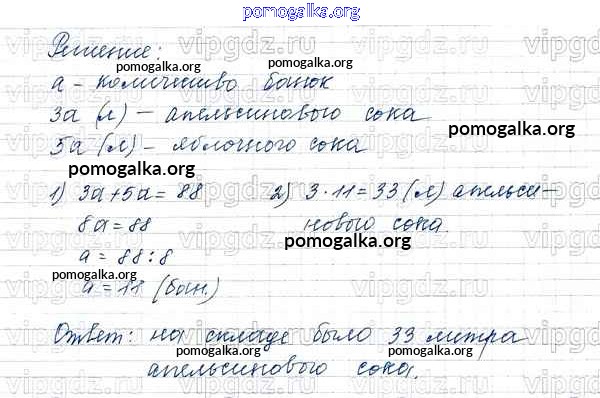 pomogalka.org
Решение:
pomogalka.org
а - количество банок
3а (л) - апельсинового сока
pomogalka.org
5а (л) - яблочного сока
pomogalka.org
1) 3а+5а=88 2) 3·11=33 (л) апельси-
8а=88 нового сока.
pomogalka.org
а = 88:8
pomogalka.org
а = 11 (бан.)
Ответ: на складе было 33 литра
pomogalka.org pomogalka.org
апельсинового сока.
pomogalka.org
vipgdz.ru